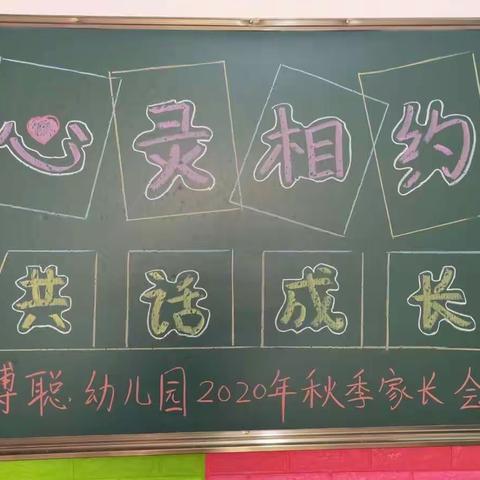 心灵相约
共话成长
博聪幼儿园2020年秋季家长会